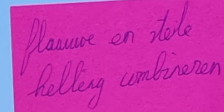 flauwe en steile
helling combineren